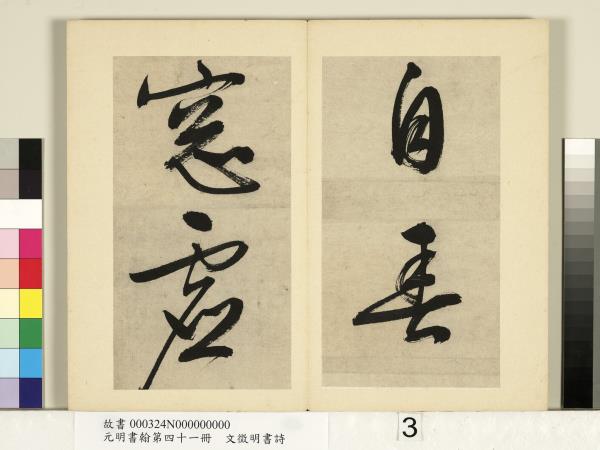 自春
窓虛
故書 000324N000000000
元明書翰第四十一冊 文徵明書詩
3